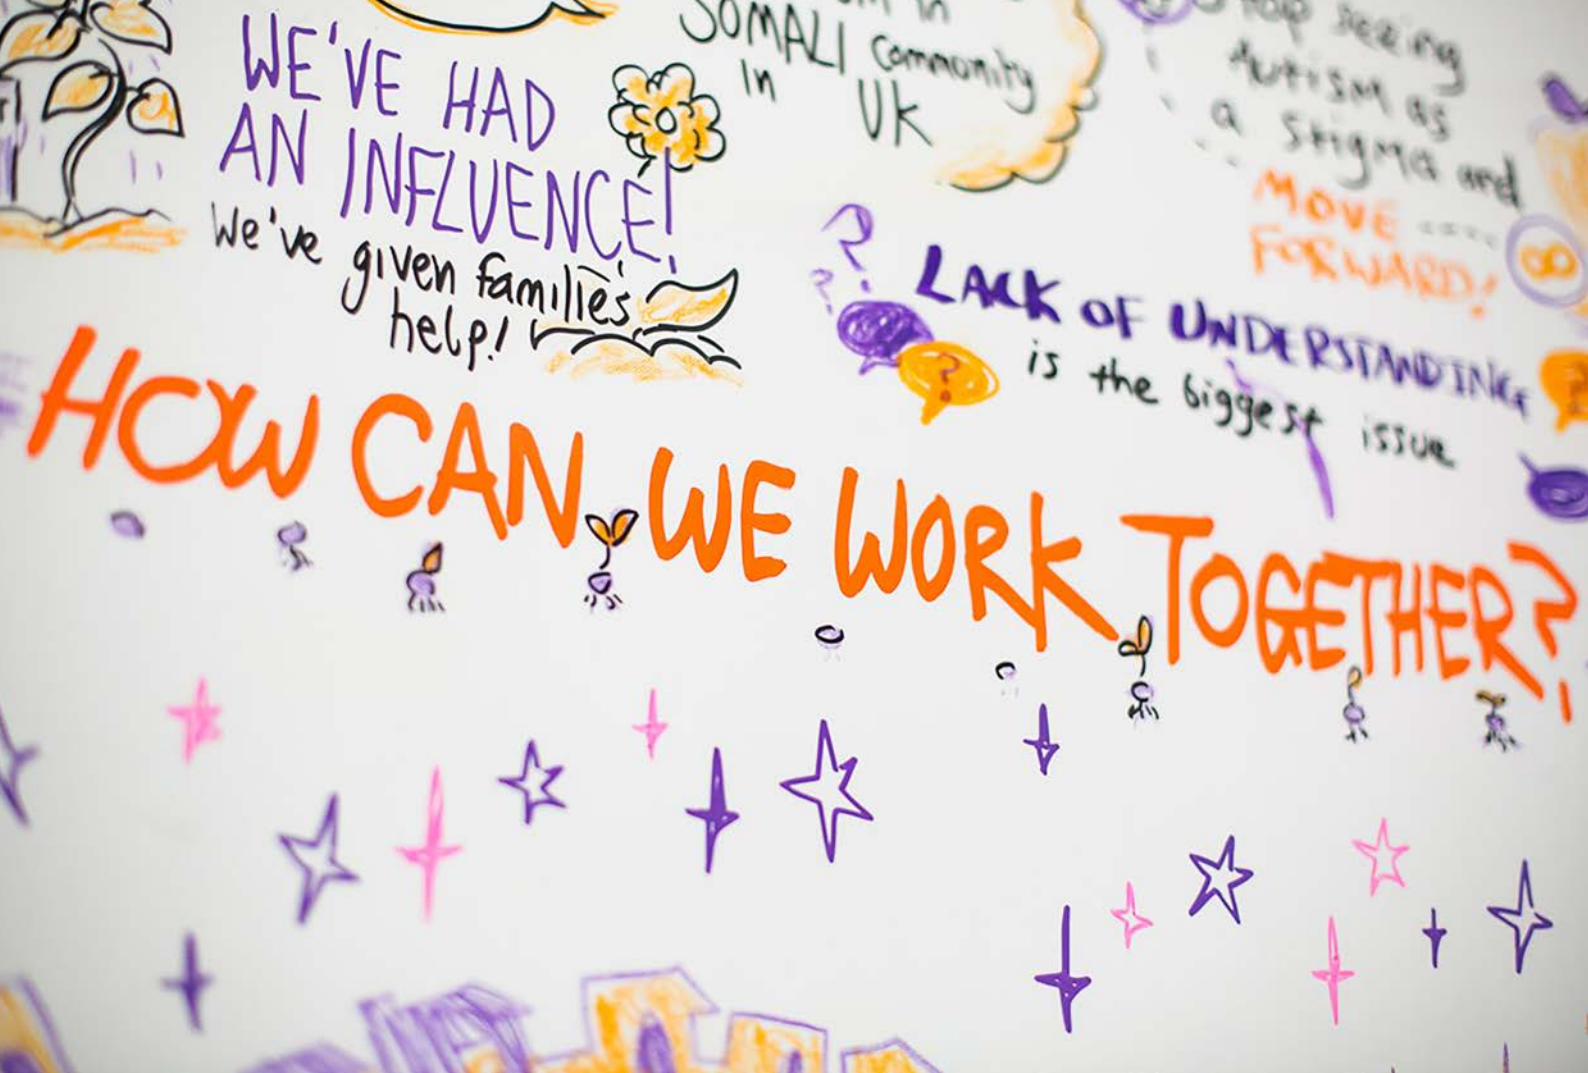 WE'VE HAD
AN INFLUENCE!
We've given families
help!
in
SOMALI Community
in UK
Stop seeing
Autism as
a stigma and
MOVE ....
FORWARD!
LACK OF UNDERSTANDING
is the biggest issue
?
?
?
?
HOW CAN WE WORK TOGETHER?